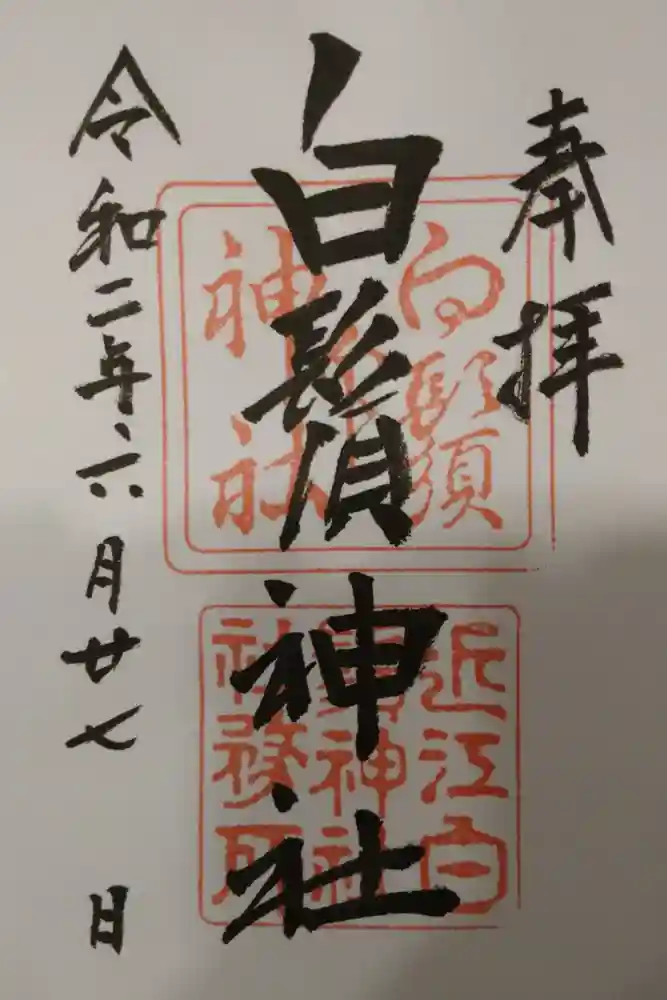 奉拝
白鬚神社
令和二年六月廿七日
近江白
鬚神社
社務所